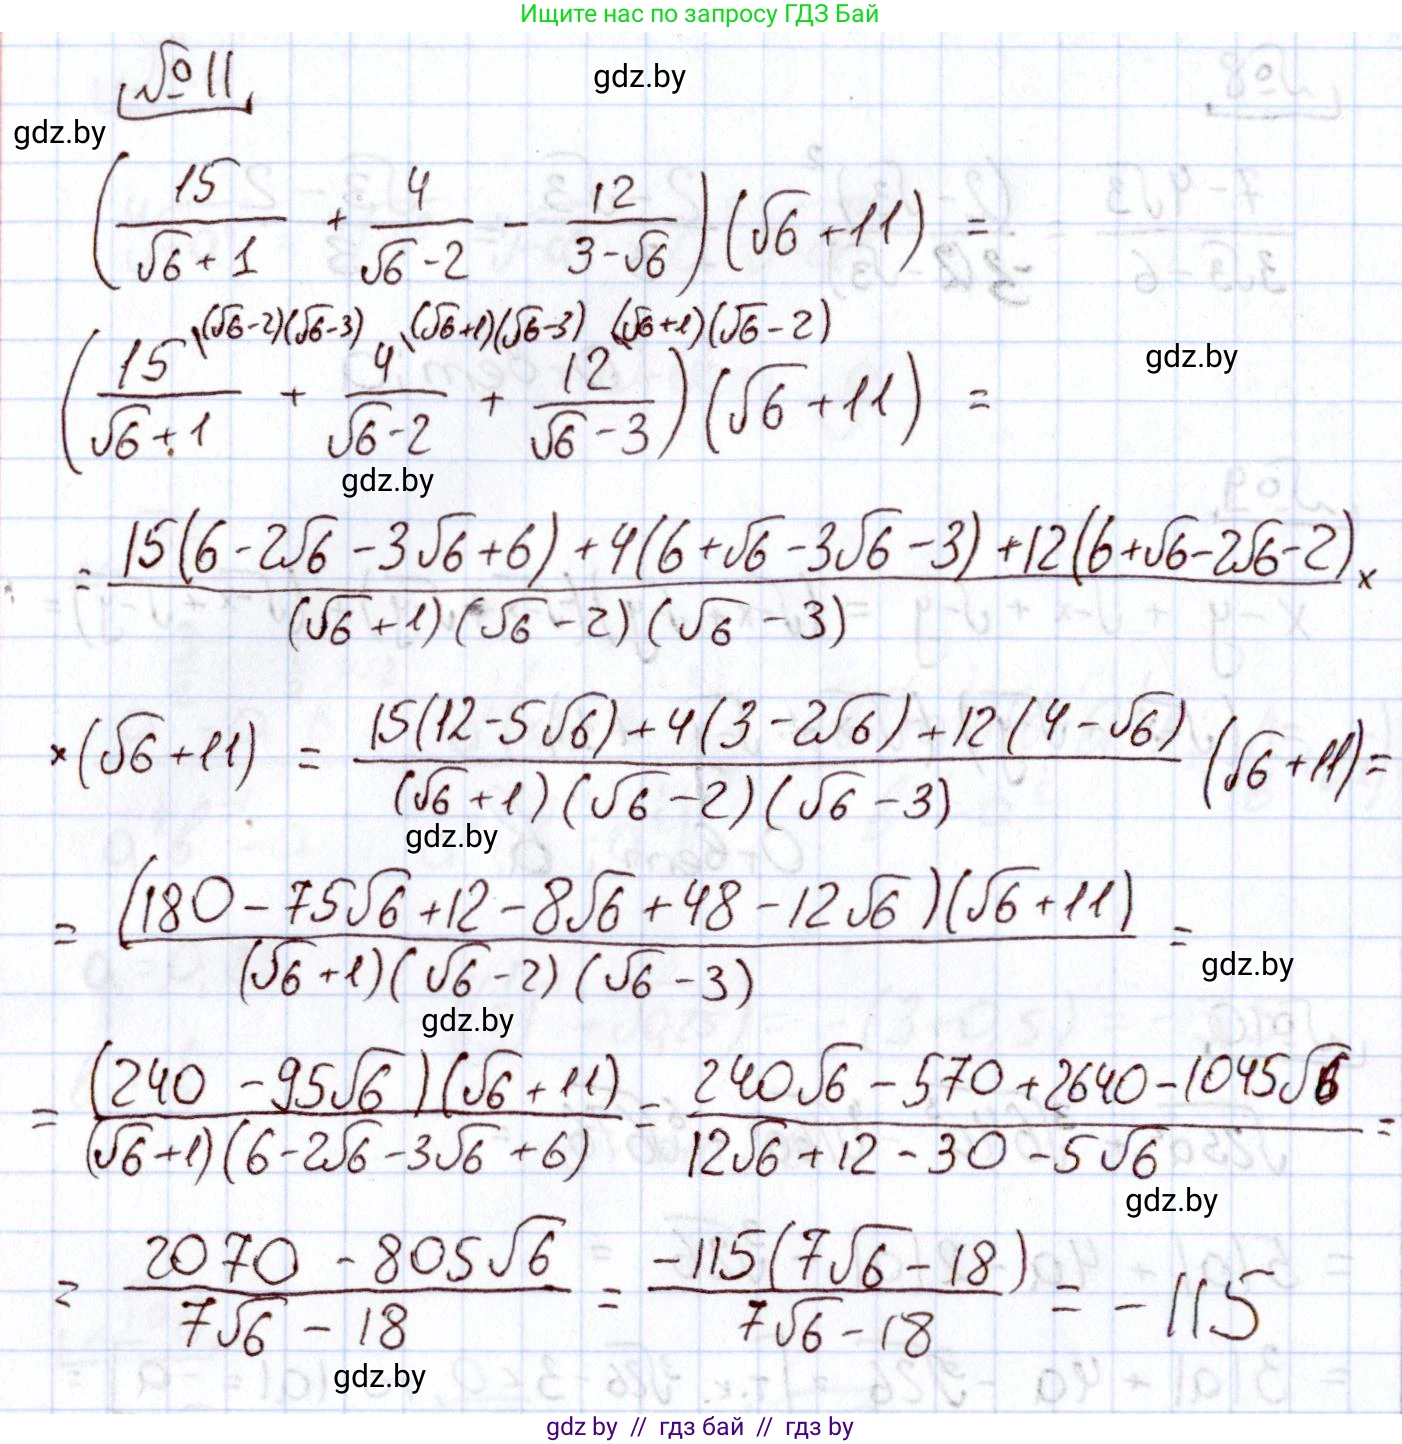 Ищите нас по запросу ГДЗ Бай
№ 11
gdz.by
gdz.by
(15/(√6+1) + 4/(√6-2) - 12/(3-√6)) (√6+11) =
\(√6-2)(√6-3) \(√6+1)(√6-3) \(√6+1)(√6-2)
(15/(√6+1) + 4/(√6-2) + 12/(√6-3)) (√6+11) =
gdz.by
gdz.by
= (15(6-2√6-3√6+6)+4(6+√6-3√6-3)+12(6+√6-2√6-2))/((√6+1)(√6-2)(√6-3)) ×
×(√6+11) = (15(12-5√6)+4(3-2√6)+12(4-√6))/((√6+1)(√6-2)(√6-3)) (√6+11) =
gdz.by
= ((180-75√6+12-8√6+48-12√6)(√6+11))/((√6+1)(√6-2)(√6-3)) =
gdz.by
gdz.by
= ((240-95√6)(√6+11))/((√6+1)(6-2√6-3√6+6)) = (240√6-570+2640-1045√6)/(12√6+12-30-5√6) =
gdz.by
= (2070-805√6)/(7√6-18) = (-115(7√6-18))/(7√6-18) = -115
gdz.by
gdz.by // гдз бай // гдз by